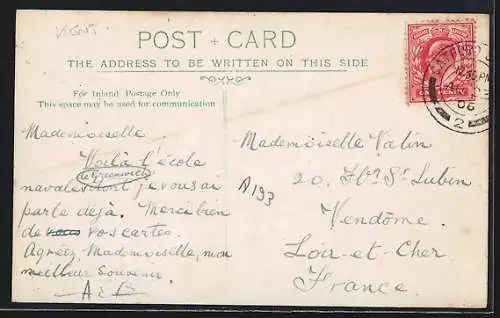 KENT.
POST + CARD
THE ADDRESS TO BE WRITTEN ON THIS SIDE
For Inland Postage Only
This space may be used for communication
Mademoiselle
Voilà l'école
de Greenwich
navale dont je vous ai
parlé déjà. Merci bien
de vous vos cartes.
Agréez, Mademoiselle, mon
meilleur souvenir
A193
Mademoiselle Valin
20, Fbg St Lubin
Vendôme.
Loir-et-Cher
France.
PENNY
06
2